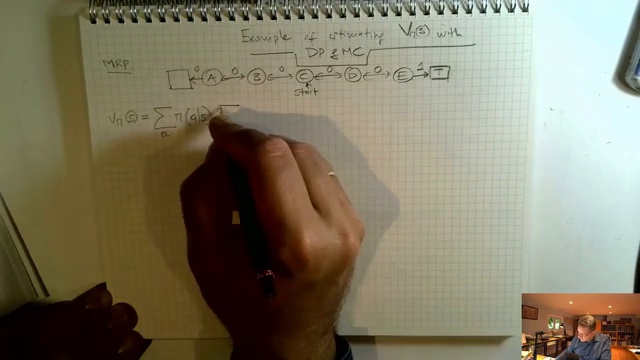 Example of estimating Vπ(s) with
DP & MC
MRP
0 A 0 B 0 C 0 D 0 E 1 T
start
Vπ(s) = Σ π(a|s) Σ
a